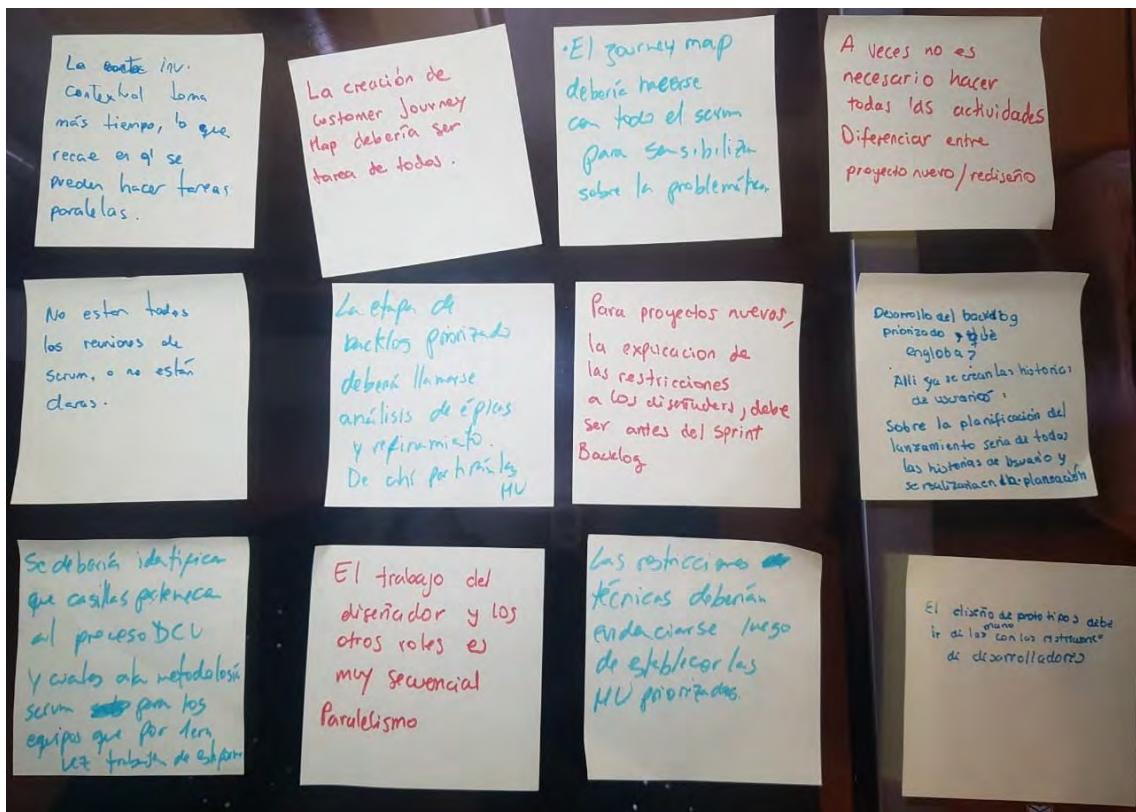 La inv.
contextual toma
más tiempo, lo que
recae en q' se
pueden hacer tareas
paralelas.
La creación de
customer Journey
Map debería ser
tarea de todos.
• El journey map
debería hacerse
con todo el scrum
para sensibilizar
sobre la problemática
A veces no es
necesario hacer
todas las actividades
Diferenciar entre
proyecto nuevo/rediseño
No estan todas
las reuniones de
scrum, o no están
claras.
La etapa de
backlog priorizado
debería llamarse
análisis de épicas
y refinamiento.
De ahí partirán las
HU
Para proyectos nuevos,
la explicacion de
las restricciones
a los diseñadores, debe
ser antes del Sprint
Backlog
Desarrollo del backlog
priorizado qué
engloba?
Alli ya se crean las historias
de usuarios.
Sobre la planificación del
lanzamiento seria de todas
las historias de usuario y
se realizaria en la planeación
Se debería identificar
que casillas pertenecen
al proceso DCU
y cuales a la metodología
scrum para los
equipos que por 1era
vez trabajan de esta forma
El trabajo del
diseñador y los
otros roles es
muy secuencial
Paralelismo
Las restricciones
técnicas deberían
evidenciarse luego
de establecer las
HU priorizadas.
El diseño de prototipos debe
ir de la mano con las
de desarrolladores